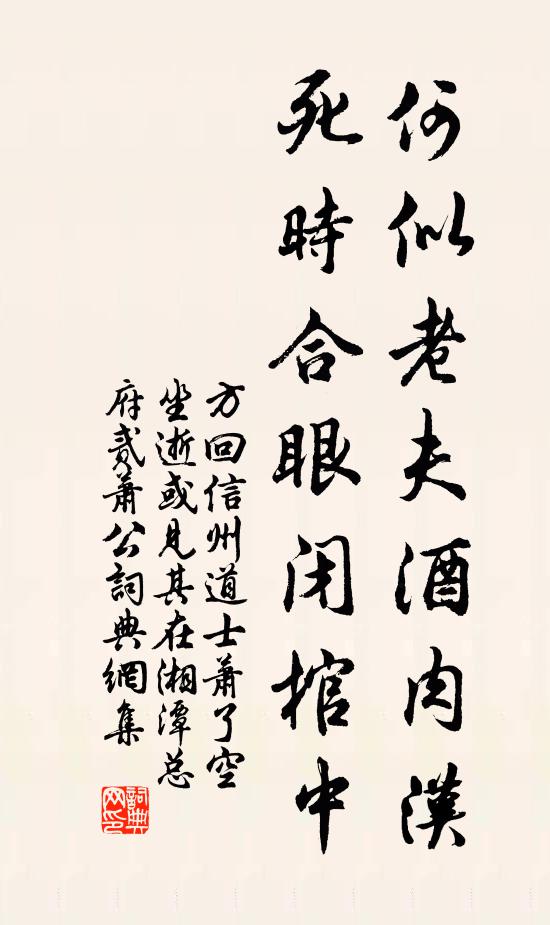 何似老夫酒肉漢
死時合眼閉棺中
方回信州道士蕭了空
坐逝或見其在湘潭总
府貳蕭公詞典網集
詞典
网印